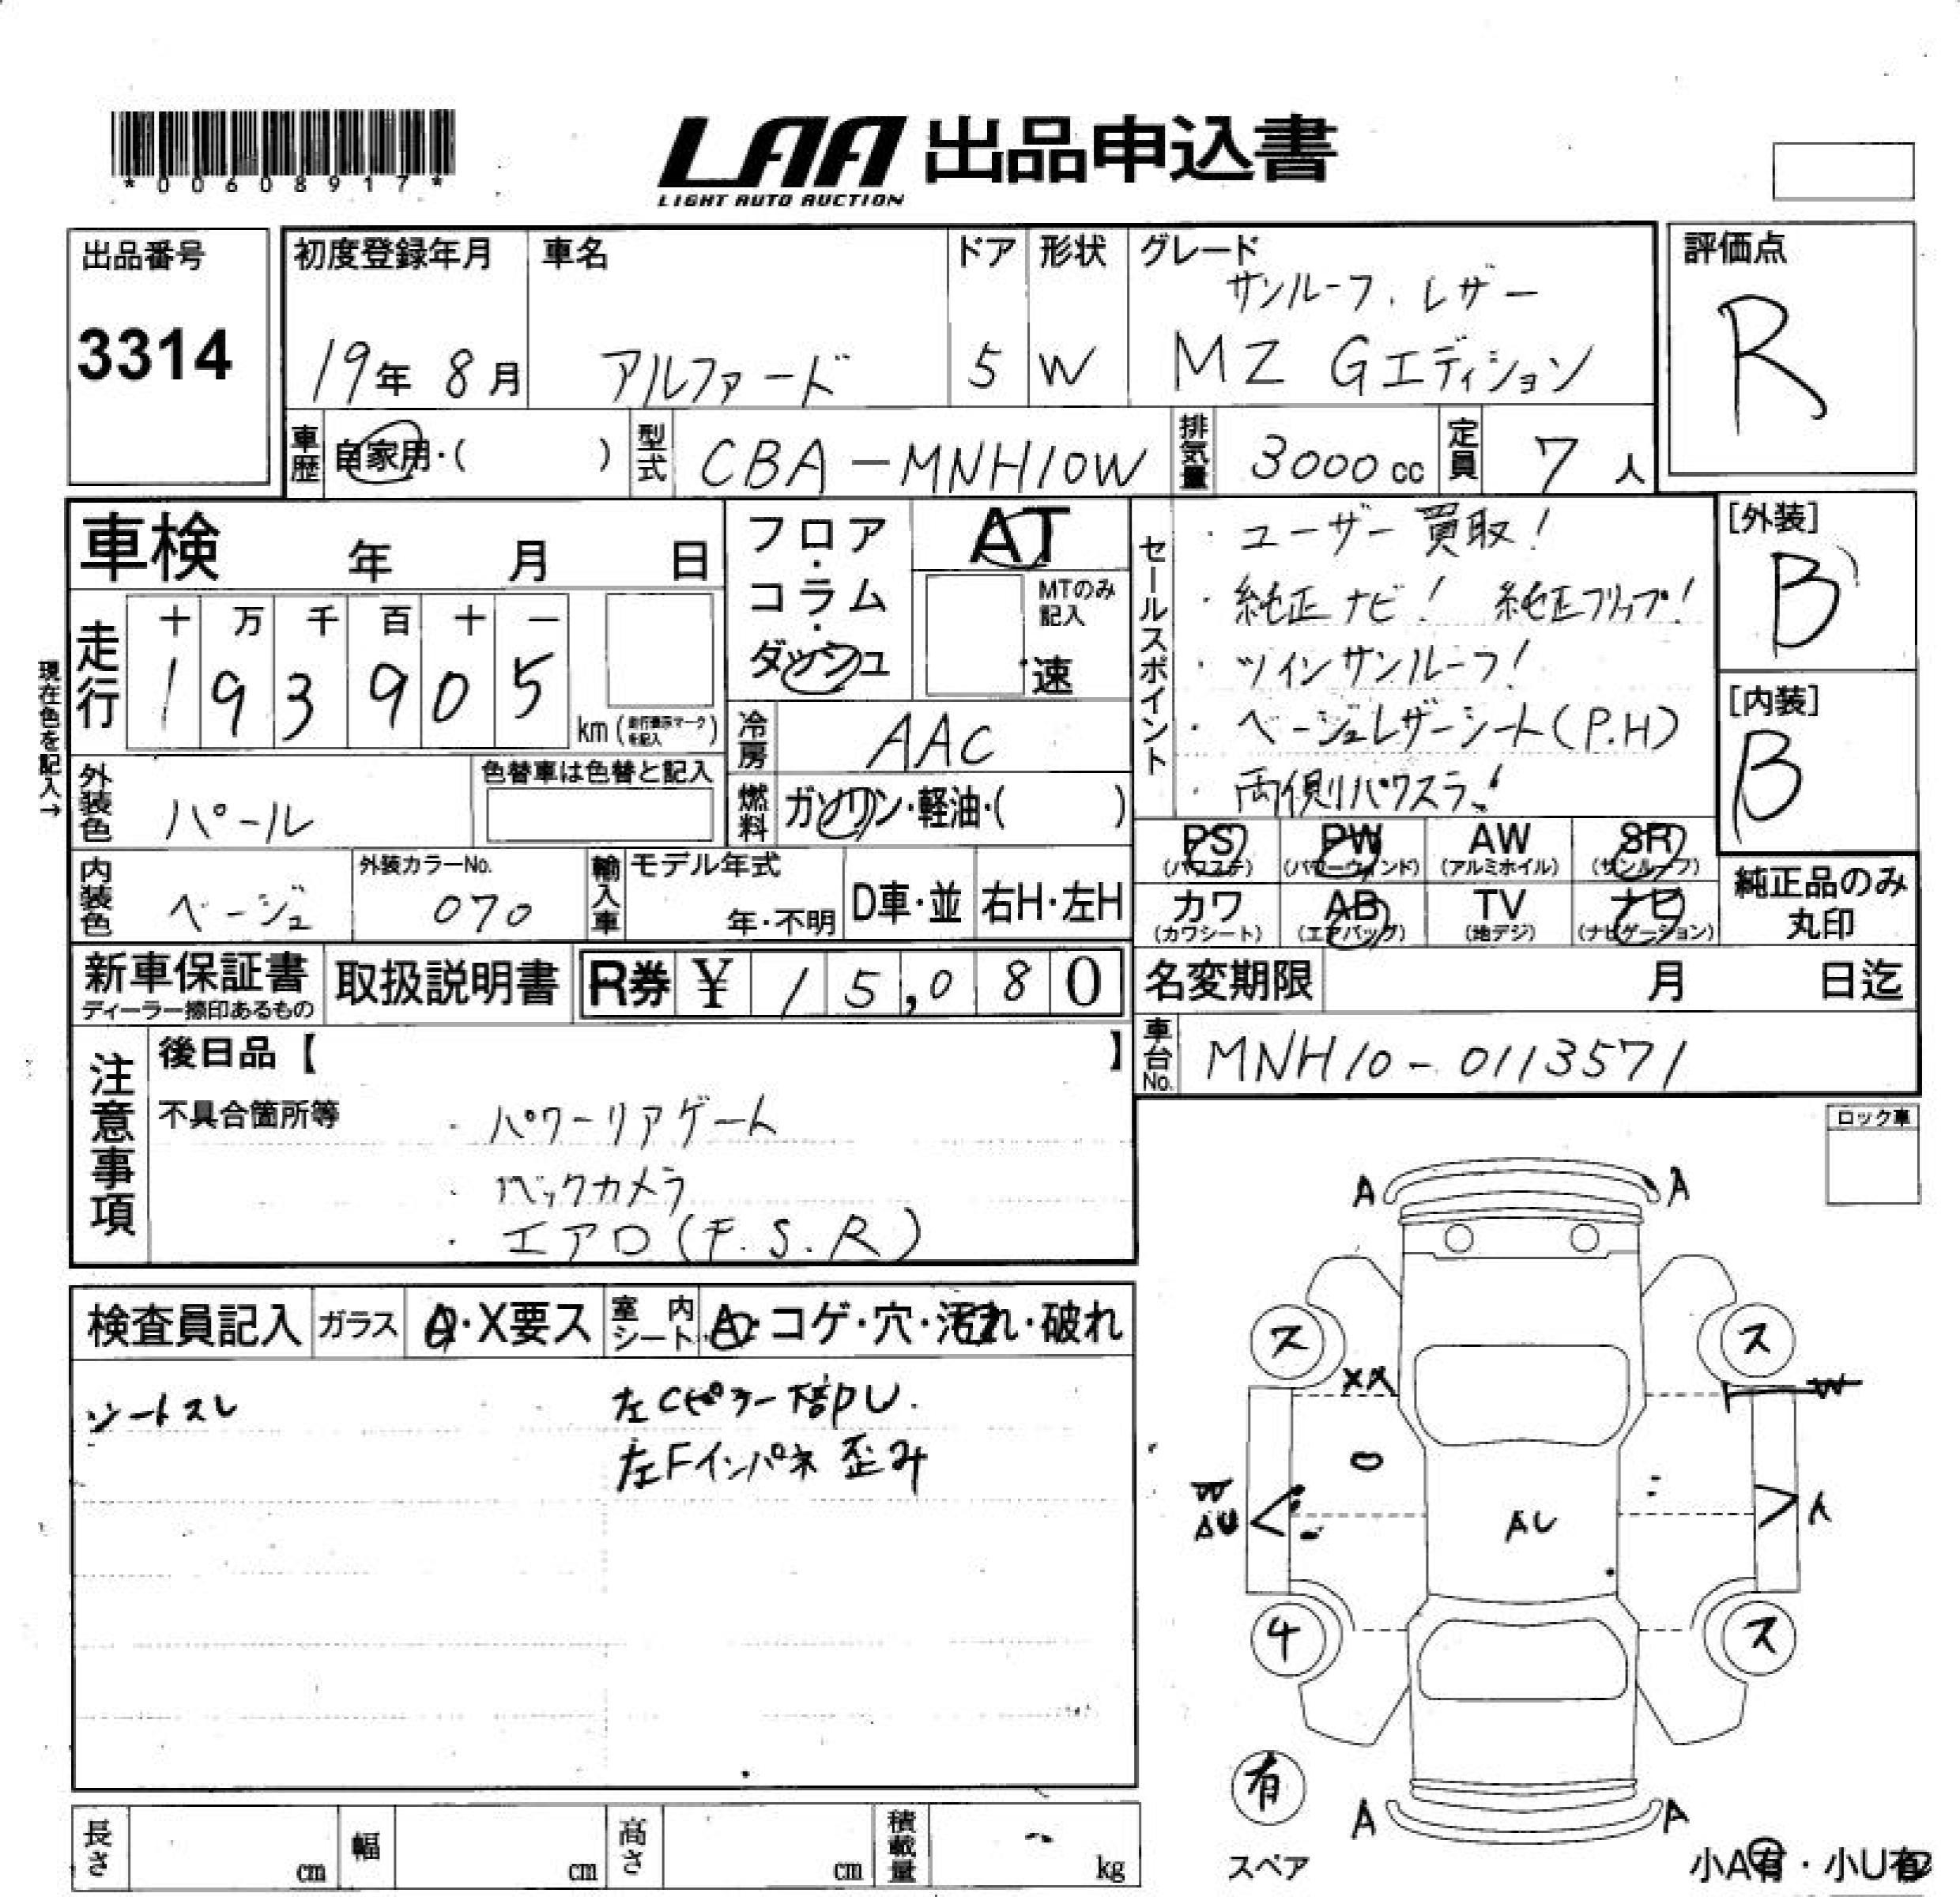 *00608917*
LAA 出品申込書
LIGHT AUTO AUCTION
出品番号
3314
初度登録年月
19年 8月
車名
アルファード
ドア
5
形状
W
グレード
サンルーフ、レザー
MZ Gエディション
評価点
R
車歴
自家用・( )
型式
CBA-MNH10W
排気量
3000cc
定員
7人
車検 年 月 日
フロア・コラム・ダッシュ
AT
MTのみ記入
速
セールスポイント
・ユーザー買取!
・純正ナビ! 純正フリップ!
・ツインサンルーフ!
・ベージュレザーシート(P.H)
・両側パワスラ!
[外装]
B
[内装]
B
現在色を記入→
走行
十 万 千 百 十 一
1 9 3 9 0 5
km(走行表示マークを記入)
冷房
AAC
燃料
ガソリン・軽油・( )
外装色
パール
色替車は色替と記入
内装色
ベージュ
外装カラーNo.
070
輸入車
モデル年式
年・不明
D車・並
右H・左H
PS (パワステ)
PW (パワーウィンド)
AW (アルミホイル)
SR (サンルーフ)
カワ (カワシート)
AB (エアバッグ)
TV (地デジ)
ナビ (ナビゲーション)
純正品のみ丸印
新車保証書
ディーラー捺印あるもの
取扱説明書
R券 ¥ 15,080
名変期限 月 日迄
車台No.
MNH10-0113571
注意事項
後日品【 】
不具合箇所等
・パワーリアゲート
・バックカメラ
・エアロ(F.S.R)
ロック車
検査員記入
ガラス
A・X要ス
室内シート
A・コゲ・穴・汚れ・破れ
シートスレ
左Cピラー下部PU.
左Fインパネ歪み
A A
ス ス
XX W
W
AU
AU
A
4 ス
有
スペア
A A
小A有・小U有
長さ cm
幅 cm
高さ cm
積載量 kg